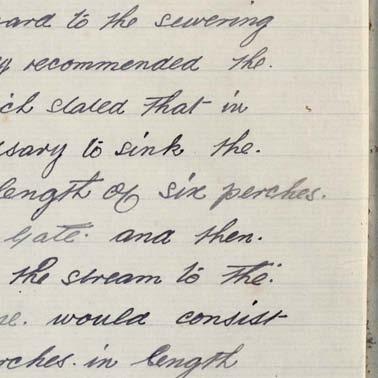 ard to the sewering
y recommended the.
ich stated that in
ssary to sink the.
length of six perches.
Gate. and then.
the stream to the.
ne. would consist
rches. in length